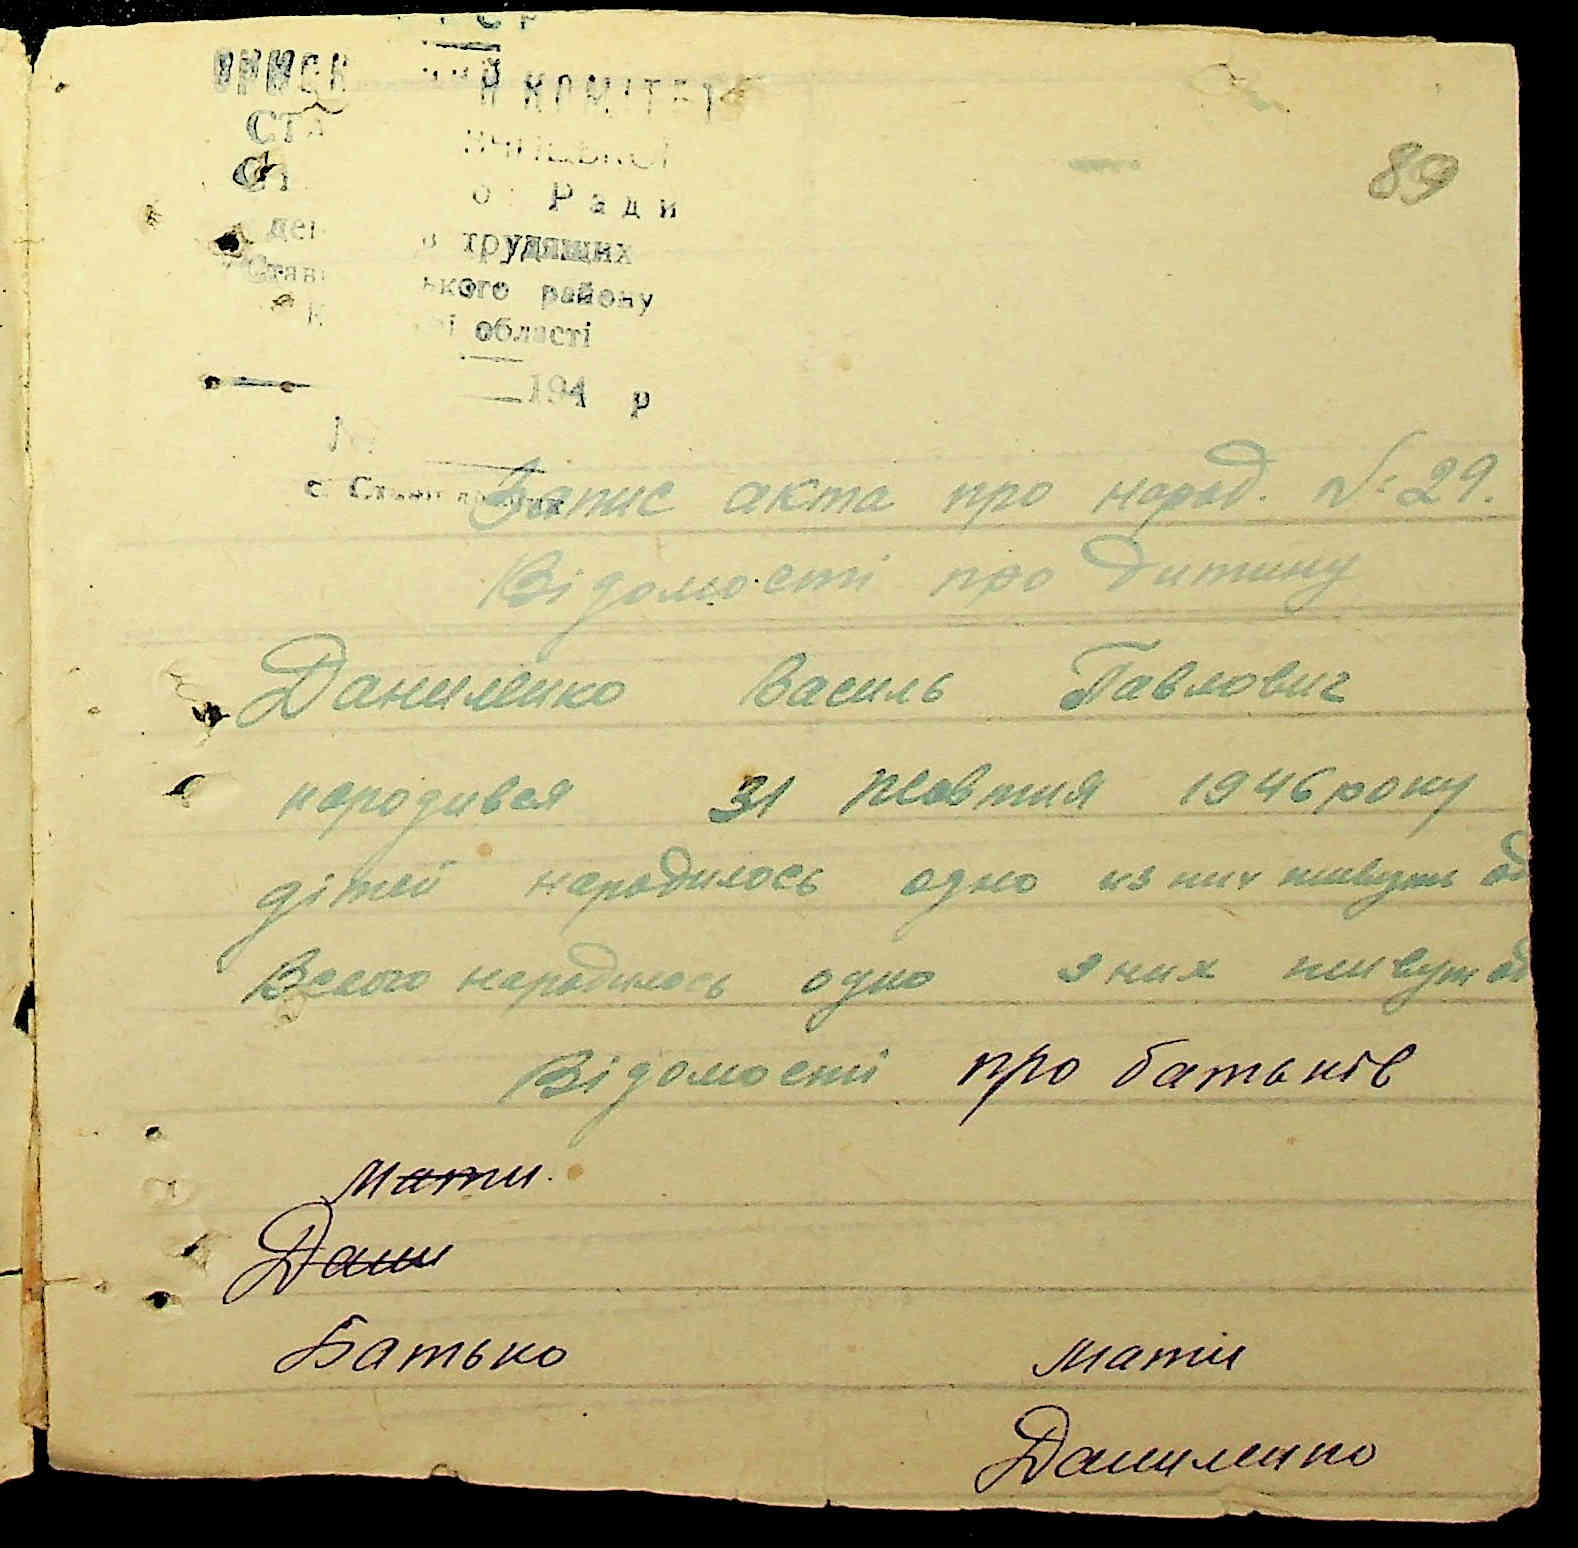 КОМІТЕТ
Ради
трудящих
ького району
області
194 р
89
Запис акта про народ. № 29.
Відомості про дитину
Даниленко Василь Павлович
народився 31 Жовтня 1946 року
дітей народилось одно из них живуть
Всього народилось одно з них живут
Відомості про батьків
Мати.
Дани
Батько Мати
Даниленко